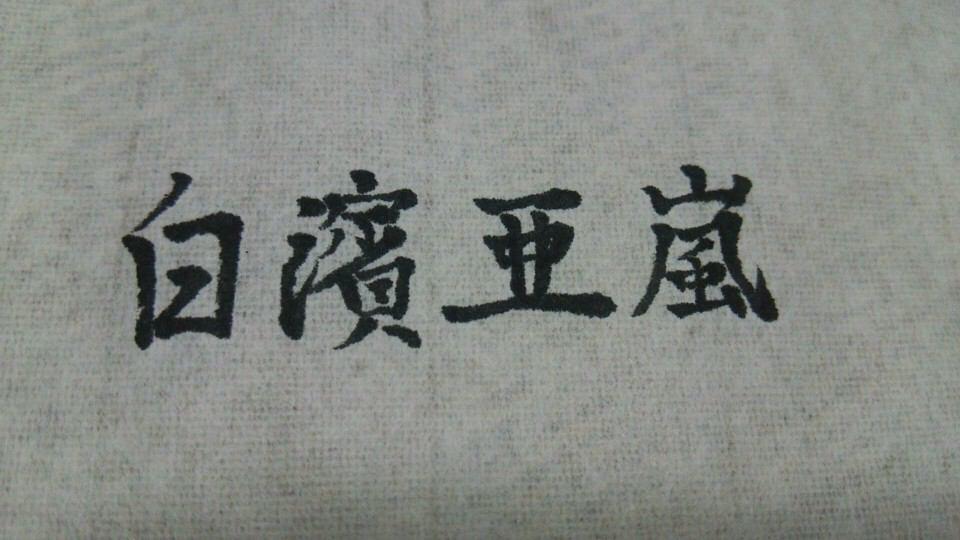 白濱亜嵐